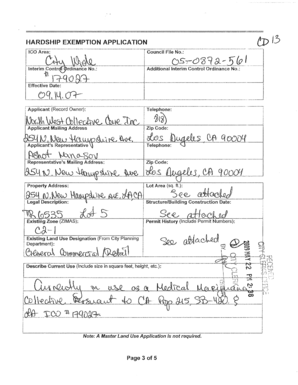 HARDSHIP EXEMPTION APPLICATION
CD 13
ICO Area:
City Wide
Council File No.:
05-0872-S61
Interim Control Ordinance No.:
# 179027
Additional Interim Control Ordinance No.:
Effective Date:
09.14.07
Applicant (Record Owner):
North West Collective Care Inc
Telephone:
213)
Applicant Mailing Address
254 N. New Hampshire Ave.
Zip Code:
Los Angeles, CA 90004
Applicant's Representative
Telephone:
Representative's Mailing Address:
254 N. New Hampshire Ave
Zip Code:
Los Angeles, CA 90004
Property Address:
254 N. New Hampshire Ave. LA CA
Lot Area (sq. ft.):
See attached
Legal Description:
TR 6535 Lot 5
Structure/Building Construction Date:
See attached
Existing Zone (ZIMAS):
C2-1
Permit History (Include Permit Numbers):
See attached
Existing Land Use Designation (From City Planning
Department):
General Commercial / Retail
Describe Current Use (Include size in square feet, height, etc.):
Currently in use as a Medical Marijuana
Collective Pursuant to CA Prop 215, SB-420 &
LA ICO # 179027
CITY CLERK
2008 MAY 22 PM 2:38
Note: A Master Land Use Application is not required.
Page 3 of 5